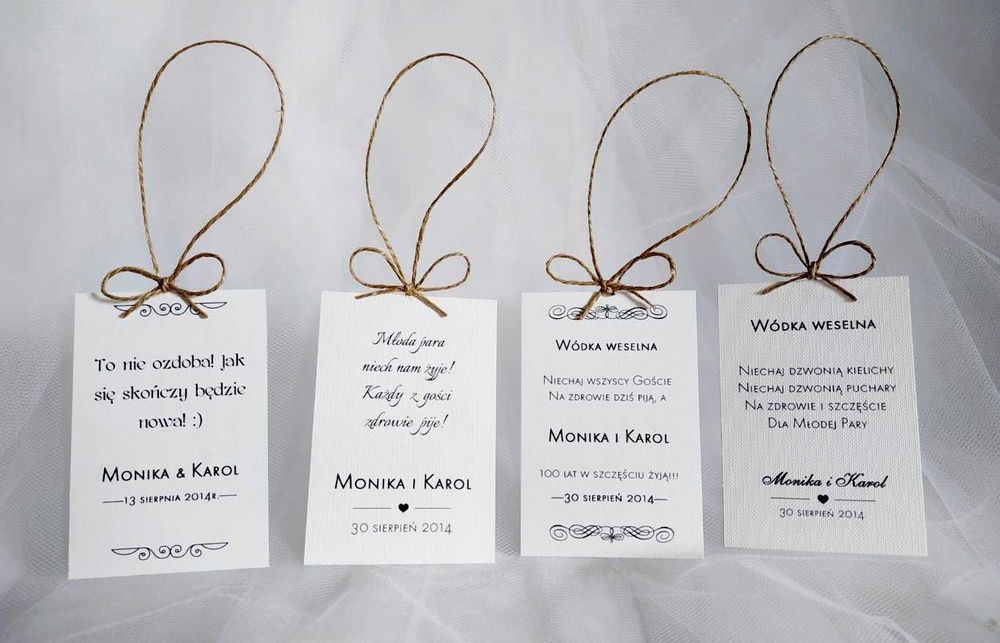 To nie ozdoba! Jak
się skończy będzie
nowa! :)
Monika & Karol
13 sierpnia 2014r.
Młoda para
niech nam żyje!
Każdy z gości
zdrowie pije!
Monika i Karol
30 sierpień 2014
Wódka weselna
Niechaj wszyscy Goście
Na zdrowie dziś piją, a
Monika i Karol
100 lat w szczęściu żyją!!!
30 sierpień 2014
Wódka weselna
Niechaj dzwonią kielichy
Niechaj dzwonią puchary
Na zdrowie i szczęście
Dla Młodej Pary
Monika i Karol
30 sierpień 2014